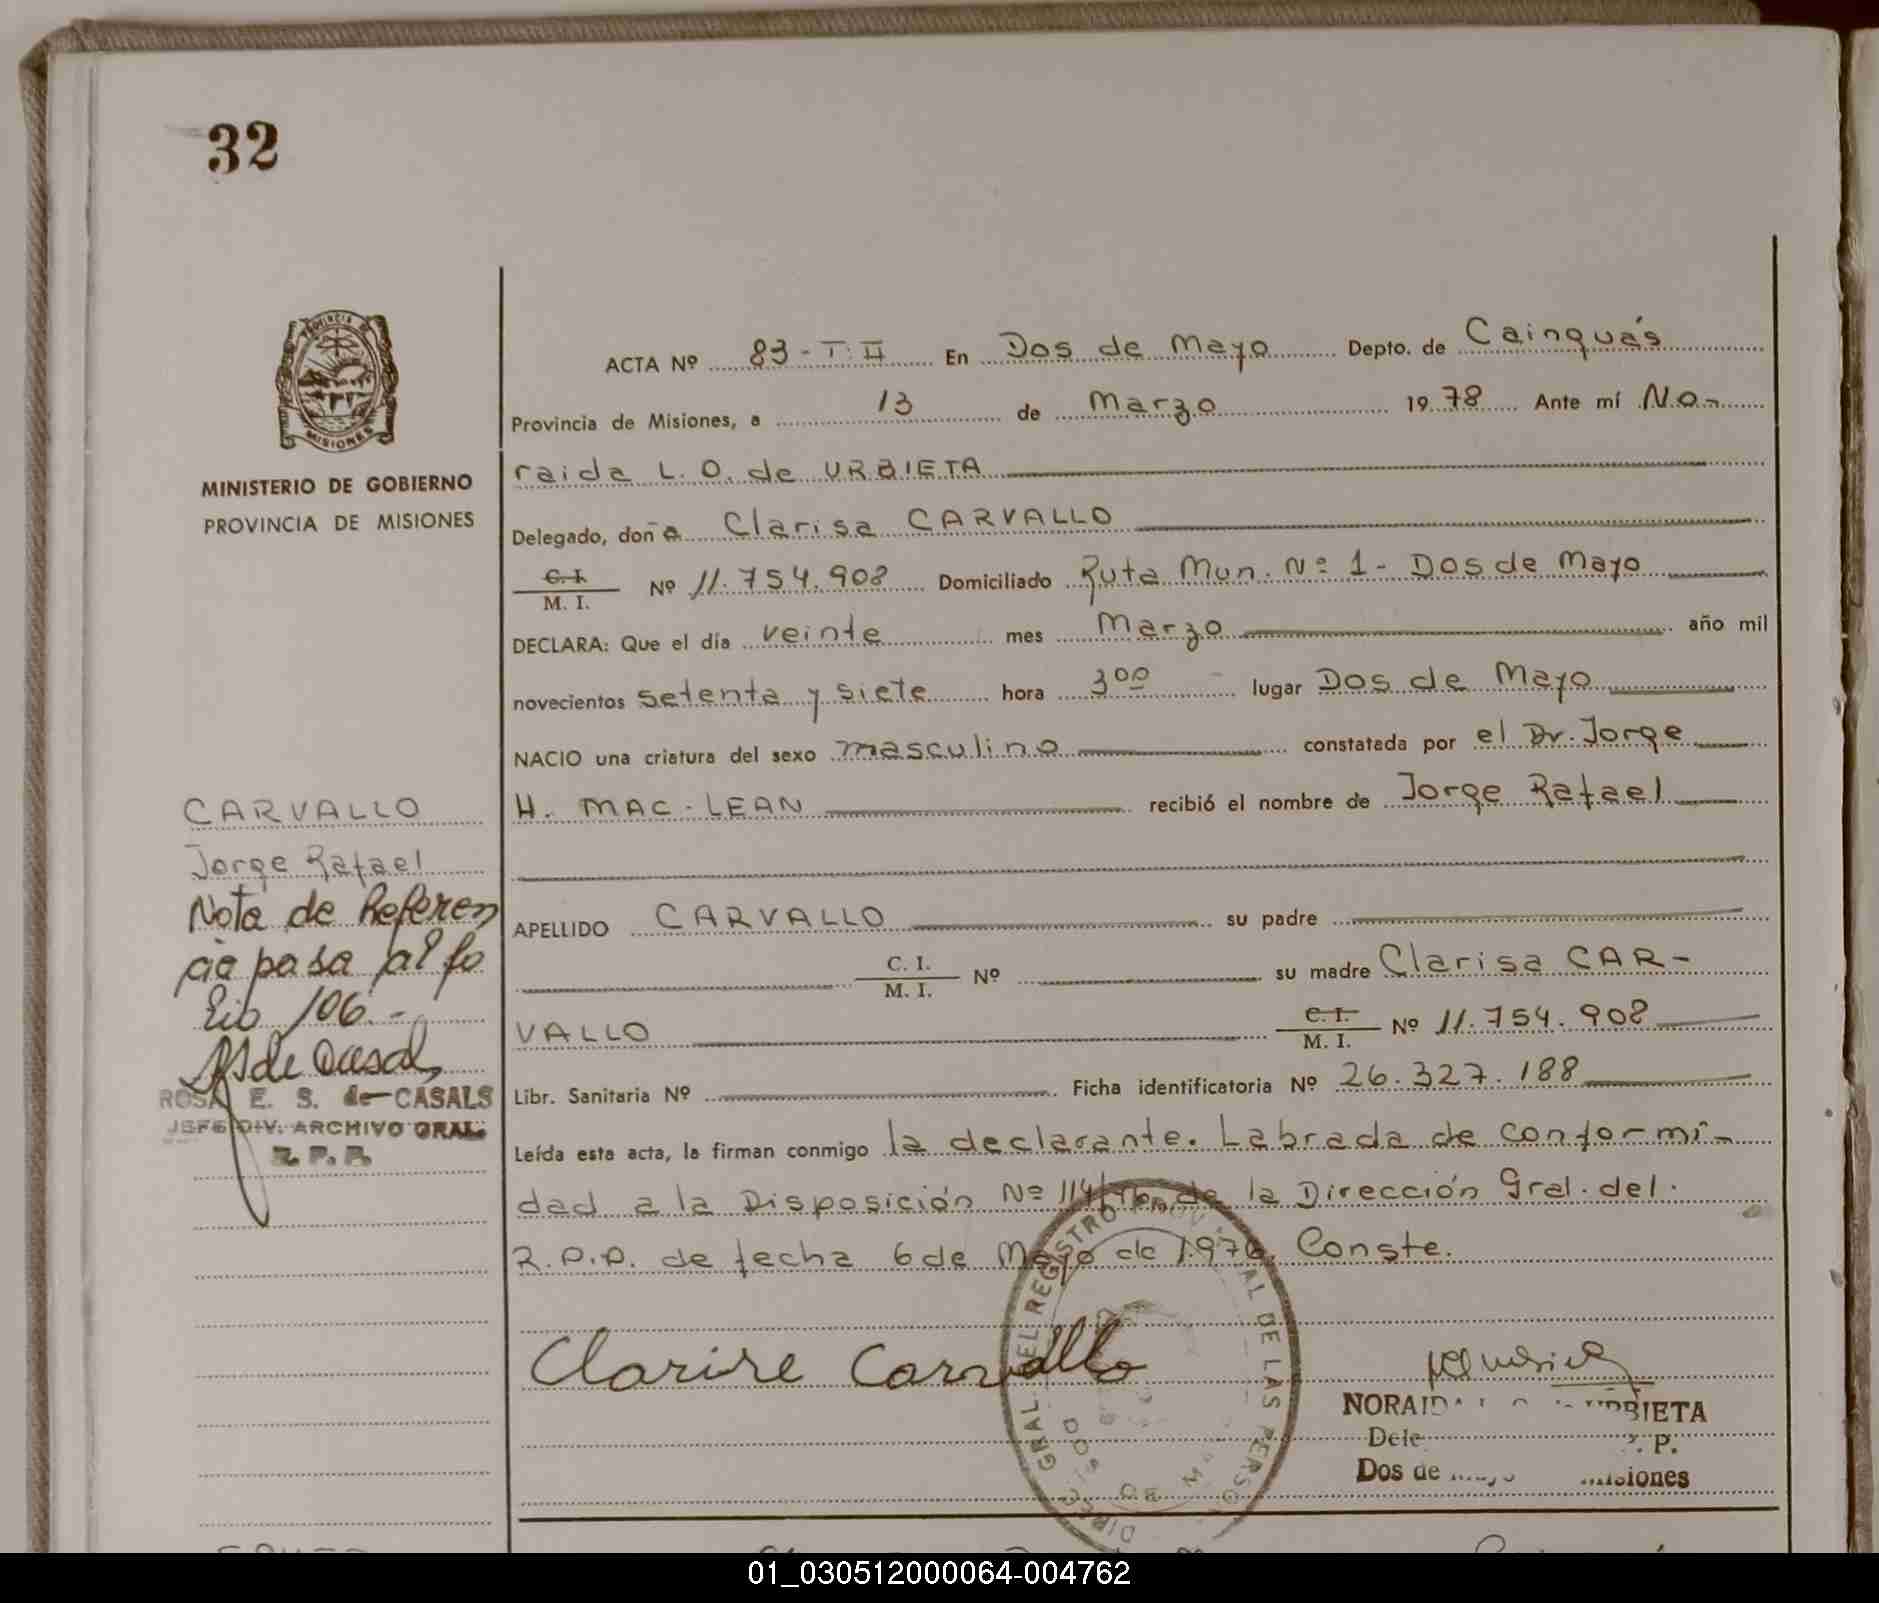 32
PROVINCIA DE
MISIONES
MINISTERIO DE GOBIERNO
PROVINCIA DE MISIONES
ACTA Nº 83-T:II En Dos de Mayo Depto. de Cainguás
Provincia de Misiones, a 13 de Marzo 1978 Ante mí No-
raida L. O. de URBIETA
Delegado, doña Clarisa CARVALLO
C. I.
M. I. Nº 11.754.908 Domiciliado Ruta Mun. Nº 1 - Dos de Mayo
DECLARA: Que el día veinte mes Marzo año mil
novecientos setenta y siete hora 3 00 lugar Dos de Mayo
NACIO una criatura del sexo masculino constatada por el Dr. Jorge
H. MAC-LEAN recibió el nombre de Jorge Rafael
APELLIDO CARVALLO su padre
C. I.
M. I. Nº su madre Clarisa CAR-
VALLO C. I.
M. I. Nº 11.754.908
Libr. Sanitaria Nº Ficha identificatoria Nº 26.327.188
Leída esta acta, la firman conmigo la declarante. Labrada de conformi-
dad a la Disposición Nº 114/76 de la Dirección Gral. del
R.P.P. de fecha 6 de Mayo de 1.976. Conste.
CARVALLO
Jorge Rafael
Nota de Referen
cia pasa al fo
lio 106.-
ROSA E. S. de CASALS
JEFE DIV. ARCHIVO GRAL.
R. P. P.
Clarise Carvallo
GRAL DEL REGISTRO PROV AL DE LAS PERSO
DOS DE MA
NORAIDA URBIETA
Dele P.
Dos de Mayo Misiones
01_030512000064-004762